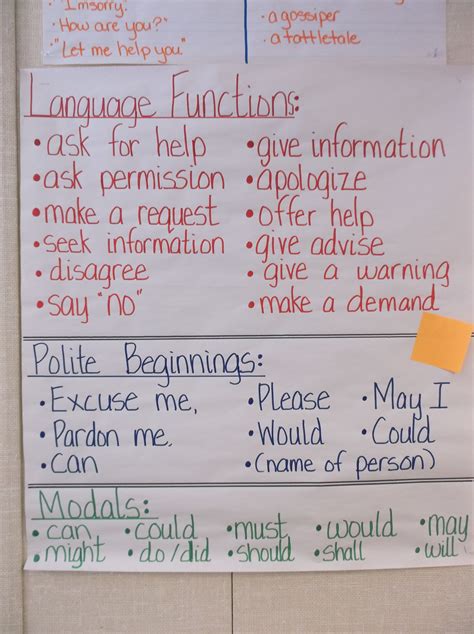 · "I'm sorry."
· How are you?"
· "Let me help you"
· a gossiper
· a tattletale
Language Functions:
• ask for help
• give information
• ask permission
• apologize
• make a request
• offer help
• seek information
• give advise
• disagree
• give a warning
• say "no"
• make a demand
Polite Beginnings:
• Excuse me,
• Please
• May I
• Pardon me.
• Would
• Could
• Can
• (name of person)
Modals:
• can
• could
• must
• would
• may
• might
• do/did
• should
• shall
• will